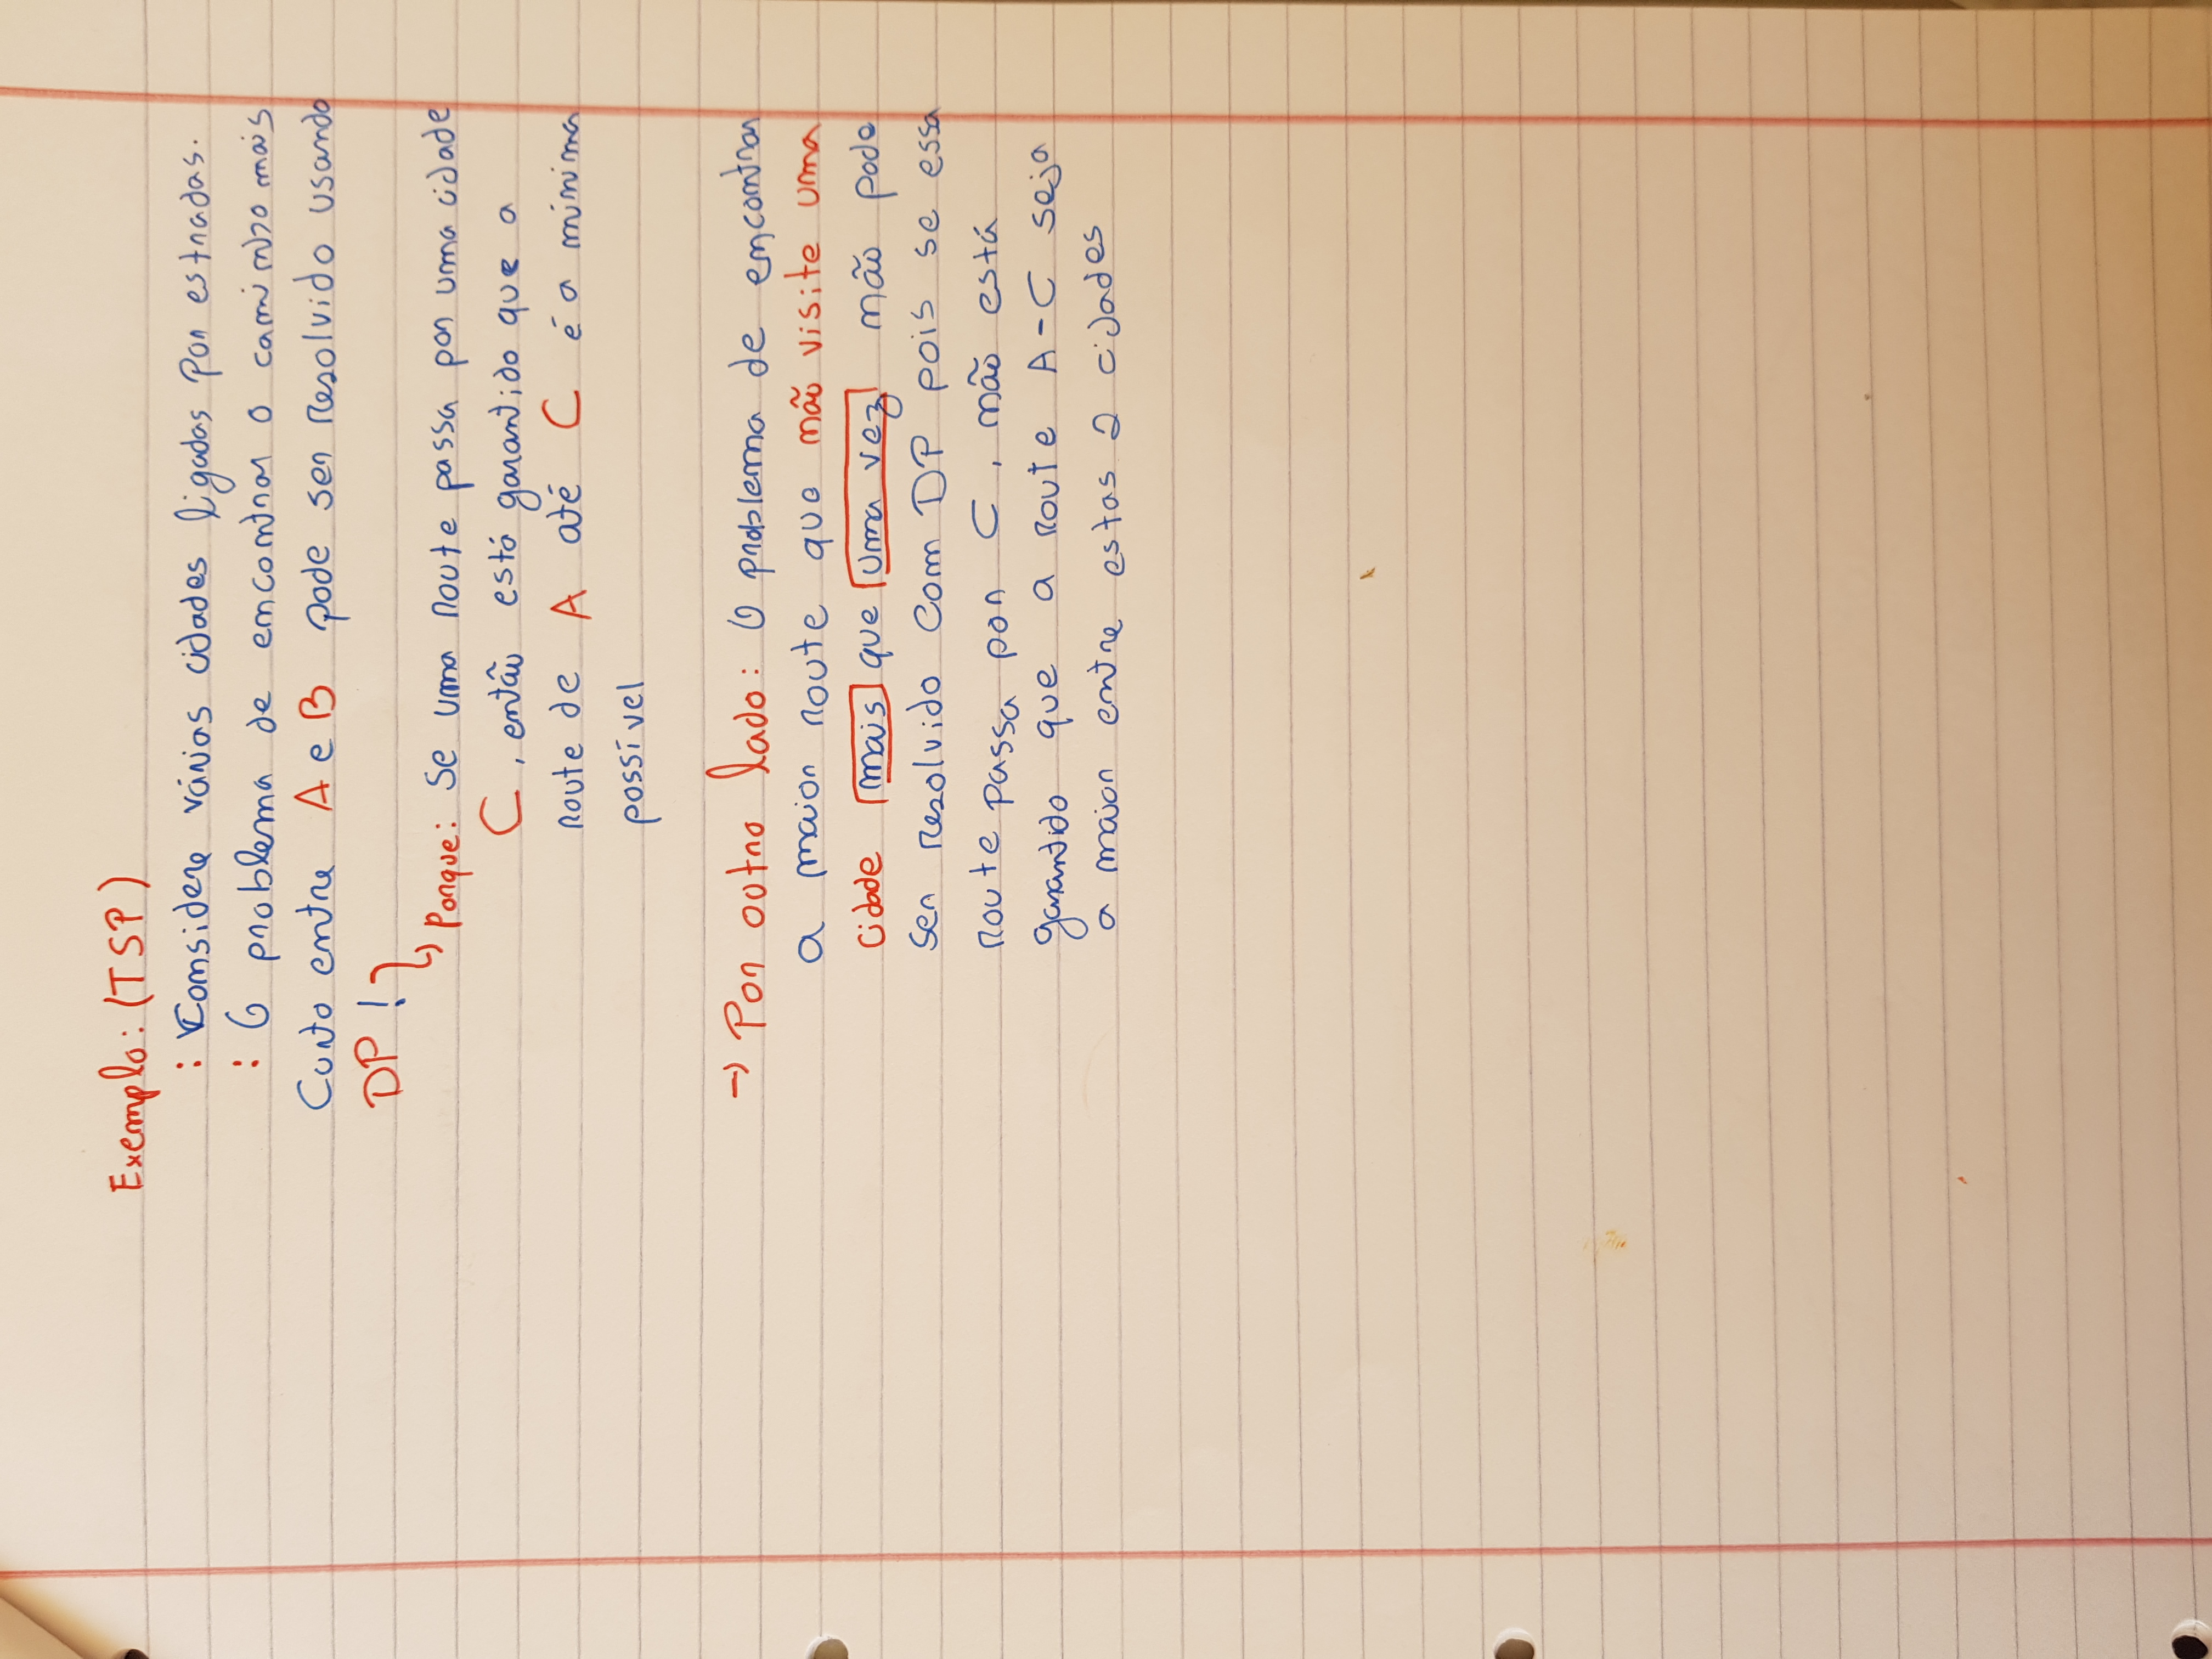 Exemplo: (TSP)
: Considere várias cidades ligadas por estradas.
: O problema de encontrar o caminho mais
Curto entre A e B pode ser resolvido usando
DP !
Porque: Se uma route passa por uma cidade
C, então está garantido que a
route de A até C é a mínima
possível
→ Por outro lado: O problema de encontrar
a maior route que não visite uma
cidade mais que uma vez não pode
ser resolvido com DP pois se essa
route passa por C, não está
garantido que a route A-C seja
a maior entre estas 2 cidades